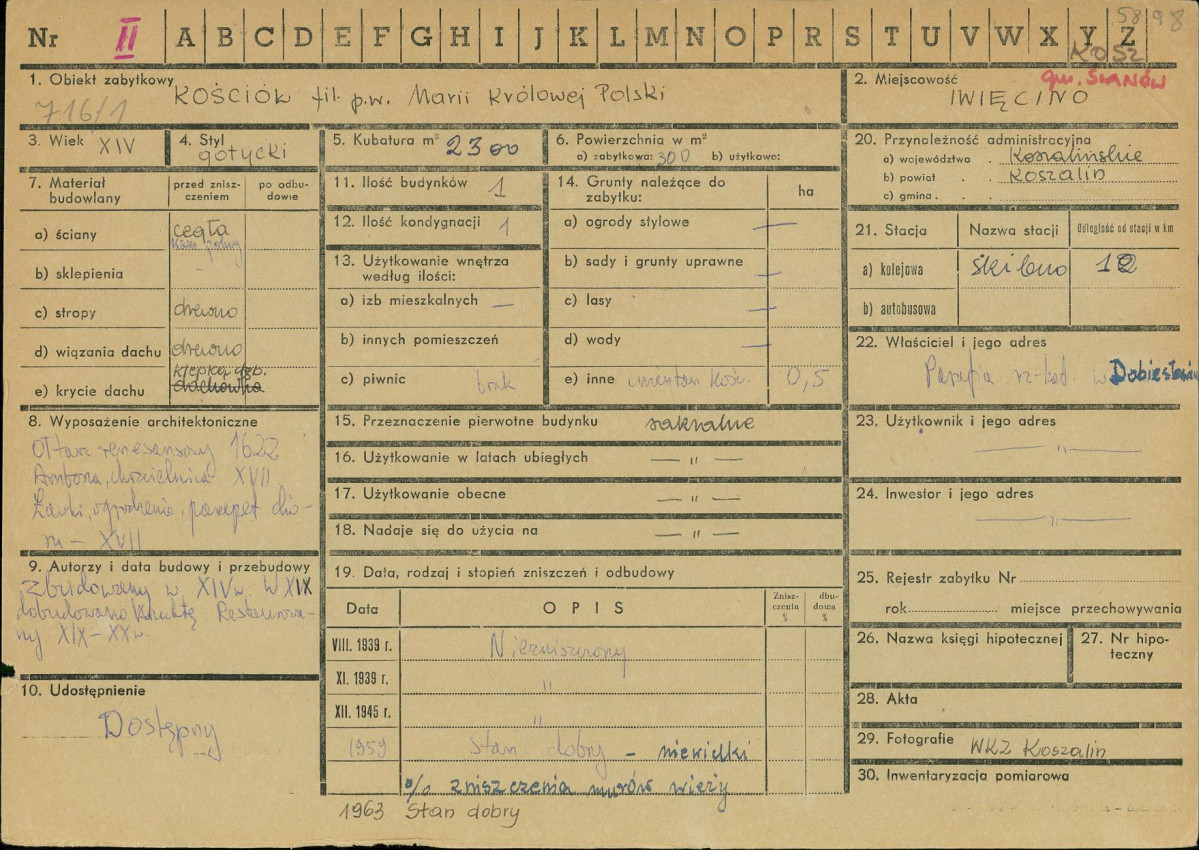 Nr II A B C D E F G H I J K L M N O P R S T U V W X Y Z
58/98
KOSZ
1. Obiekt zabytkowy KOŚCIÓŁ fil. p.w. Marii Królowej Polski
716/1
2. Miejscowość gm. SIANÓW
IWIĘCINO
3. Wiek XIV
4. Styl gotycki
5. Kubatura m³ 2300
6. Powierzchnia w m²
a) zabytkowa: 300 b) użytkowa:
7. Materiał budowlany
przed znisz-
czeniem
po odbu-
dowie
a) ściany cegła
kam. polny
b) sklepienia -
c) stropy drewno
d) wiązania dachu drewno
e) krycie dachu klepka dęb.
dachówka
8. Wyposażenie architektoniczne
Ołtarz renesansowy 1622
Ambona, chrzcielnica XVII
Ławki, ogrodzenie, parapet chó-
ru – XVII
9. Autorzy i data budowy i przebudowy
Zbudowany w XIV w. W XIX
dobudowano kruchtę Restaurowa-
ny XIX-XX w.
10. Udostępnienie
Dostępny
11. Ilość budynków 1
12. Ilość kondygnacji 1
13. Użytkowanie wnętrza
według ilości:
a) izb mieszkalnych —
b) innych pomieszczeń
c) piwnic brak
14. Grunty należące do
zabytku:
ha
a) ogrody stylowe —
b) sady i grunty uprawne —
c) lasy —
d) wody —
e) inne cmentarz kośc. 0,5
15. Przeznaczenie pierwotne budynku sakralne
16. Użytkowanie w latach ubiegłych — " —
17. Użytkowanie obecne — " —
18. Nadaje się do użycia na — " —
19. Data, rodzaj i stopień zniszczeń i odbudowy
Data
OPIS
Znisz-
czenia
%
dbu-
dowa
%
VIII. 1939 r. Niezniszczony
XI. 1939 r. "
XII. 1945 r. "
1959 stan dobry – niewielki
% zniszczenia murów wieży
1963 Stan dobry
20. Przynależność administracyjna
a) województwo . Koszalińskie
b) powiat . . Koszalin
c) gmina . .
21. Stacja
Nazwa stacji
Odległość od stacji w km
a) kolejowa Skibno 12
b) autobusowa
22. Właściciel i jego adres
Parafia rz-kat. w Dobiesławiu
23. Użytkownik i jego adres
— " —
24. Inwestor i jego adres
— " —
25. Rejestr zabytku Nr
rok miejsce przechowywania
26. Nazwa księgi hipotecznej
27. Nr hipo-
teczny
28. Akta
29. Fotografie WKZ Koszalin
30. Inwentaryzacja pomiarowa